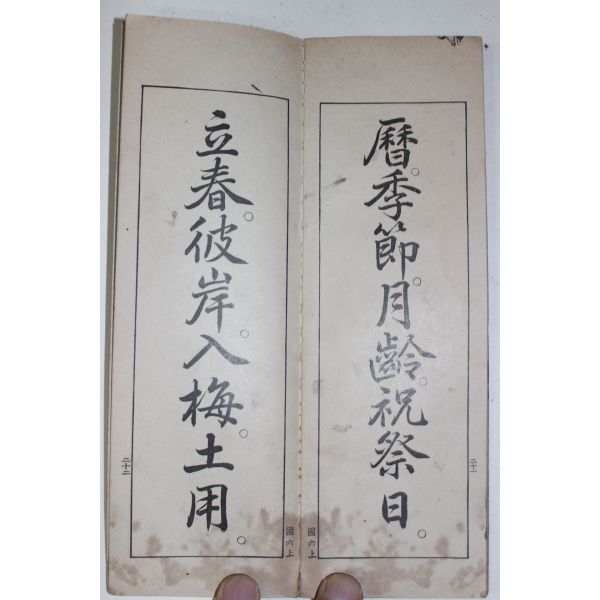 暦。季節。月齡。祝祭日。
二十一
國六上
立春。彼岸。入梅。土用。
二十二
國六上